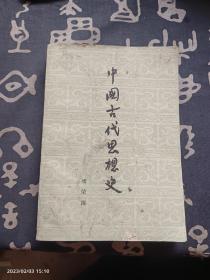 中國古代思想史
2023/02/03 15:10